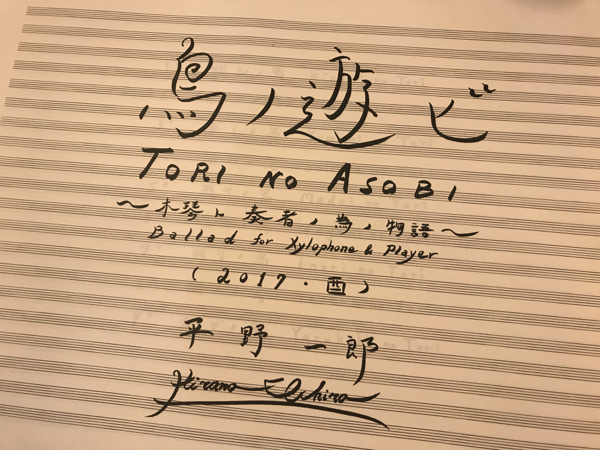 鳥ノ遊ビ
TORI NO ASOBI
〜木琴ト奏者ノ為ノ物語〜
Ballad for Xylophone & Player
(2017・酉)
平野一郎
Hirano Ichiro